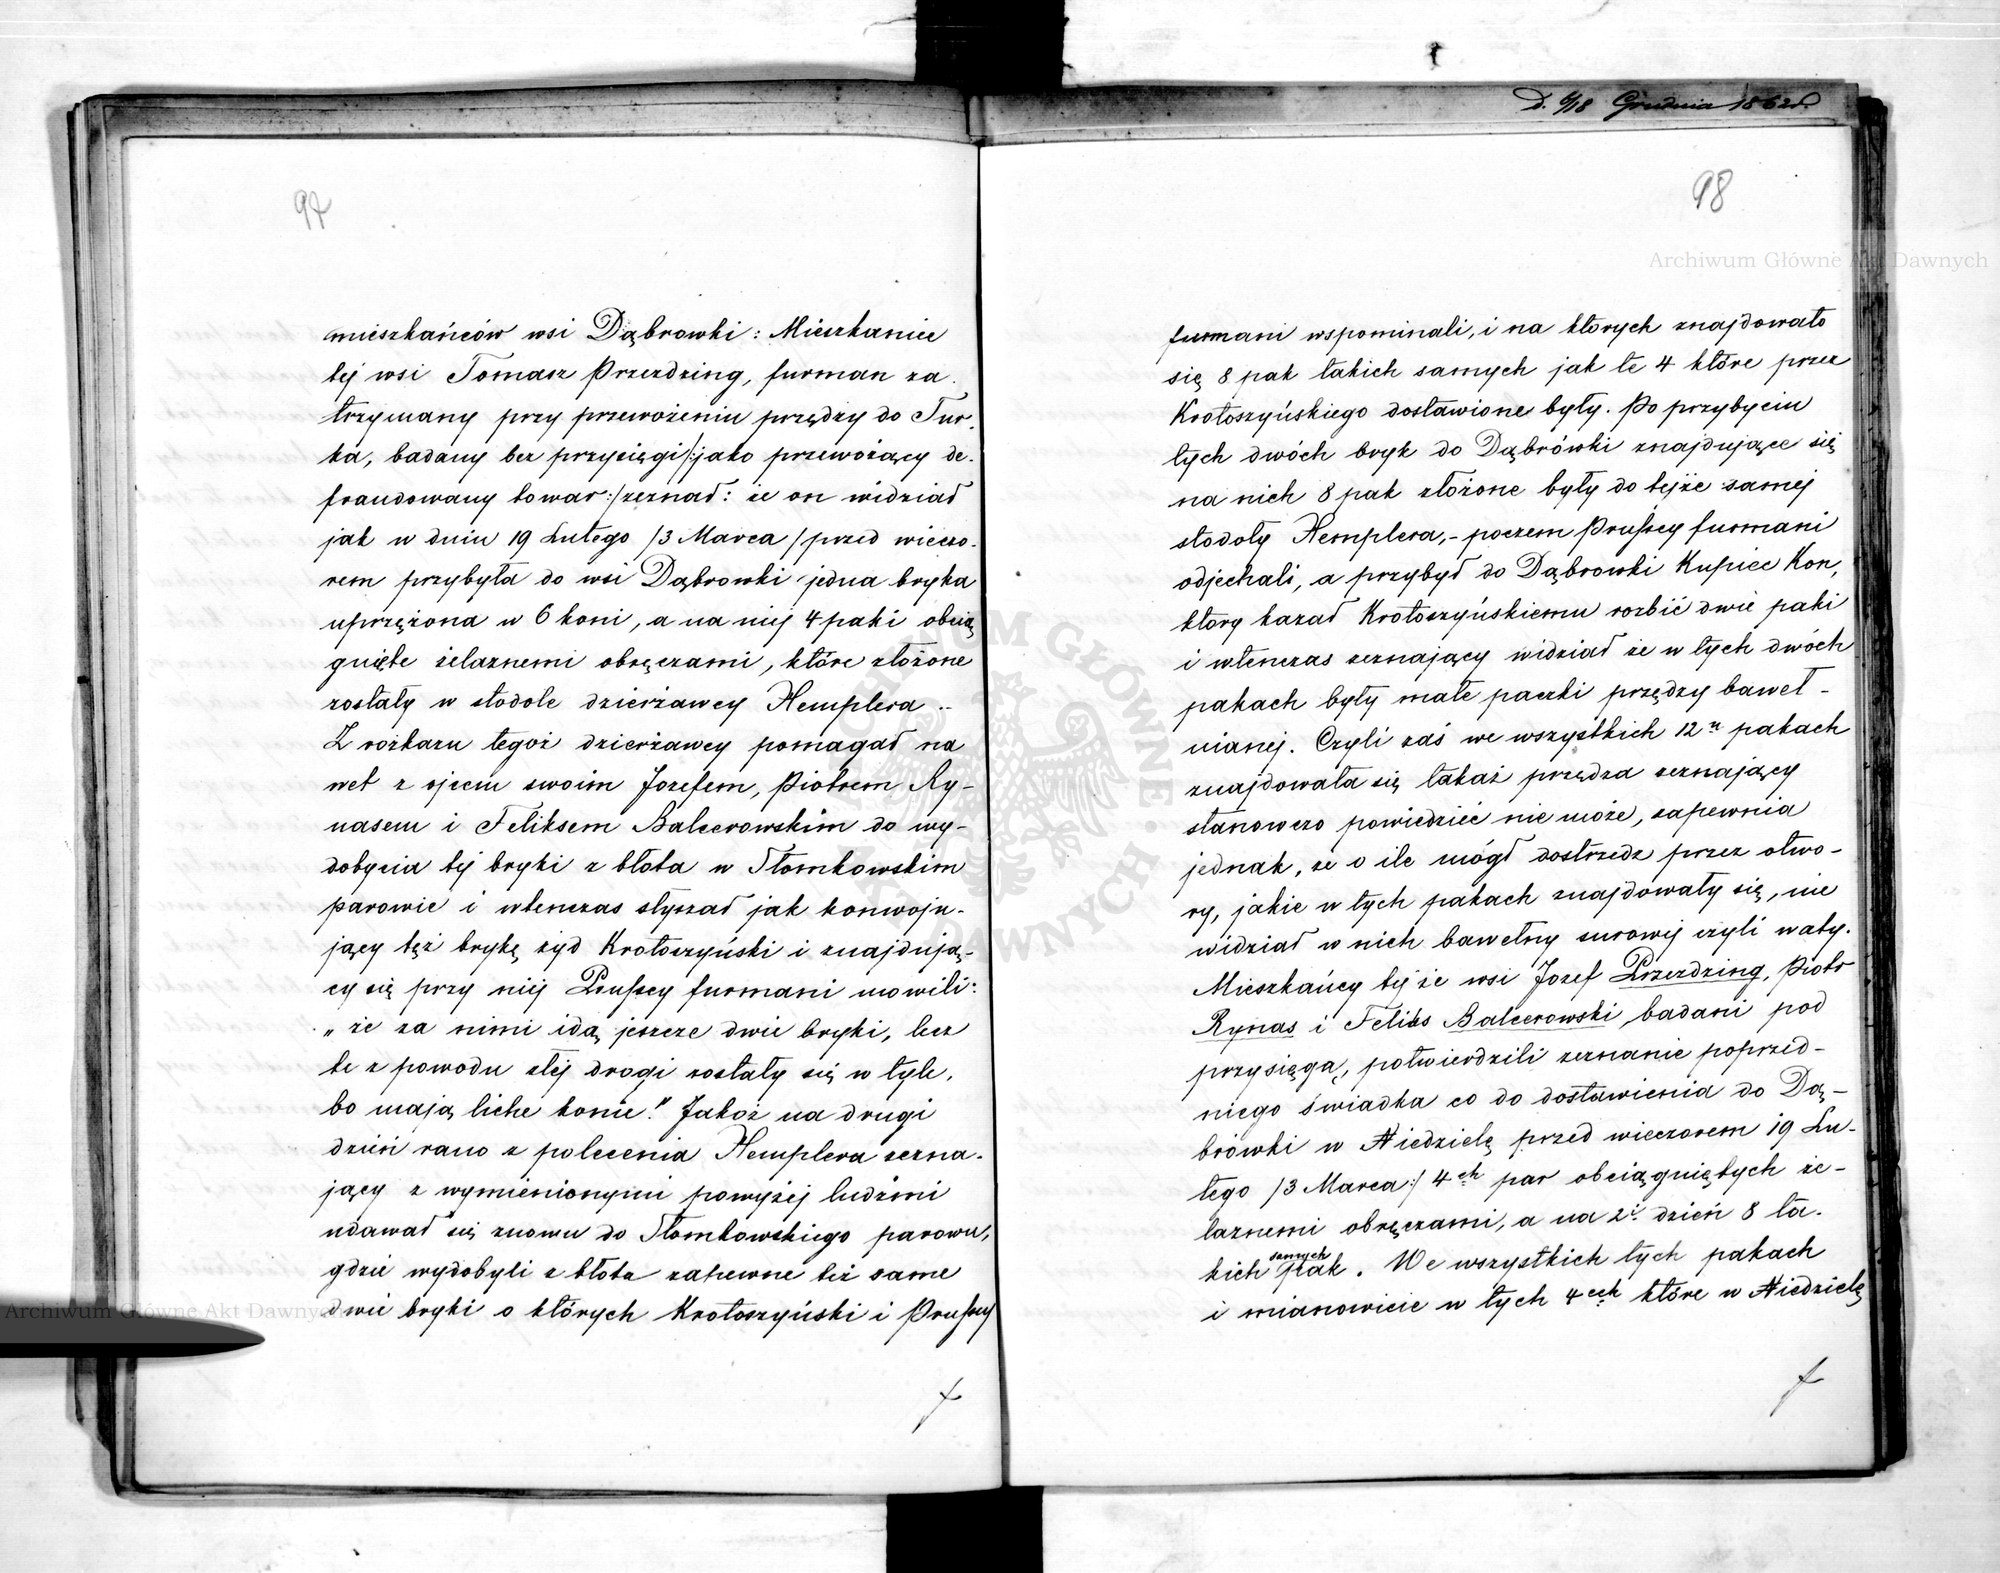 97
mieszkańców wsi Dąbrowki: Mieszkaniec
tej wsi Tomasz Przezdzing, furman za
trzymany przy przewożeniu przędzy do Tur.
ka, badany bez przysięgi /:jako przewożący de.
fraudowany towar:/ zeznał: że on widział
jak w dniu 19 Lutego /3 Marca/ przed wieczo.
rem przybyła do wsi Dąbrowki jedna bryka
uprzężona w 6 koni, a na niej 4 paki obcią
gnięte żelaznemi obręczami, które złożone
zostały w stodole dzierżawcy Hemplera .-
Z rozkazu tegoż dzierżawcy pomagał na
wet z ojcem swoim Jozefem, Piotrem Ry-
nasem i Feliksem Balcerowskim do wy-
dobycia tej bryki z błota w Słomkowskim
parowie i wtenczas słyszał jak konwoju-
jący też brykę żyd Krotoszyński i znajdują-
cy się przy niej Prufscy furmani mowili:
„że za nimi idą jeszcze dwie bryki, lecz
te z powodu złej drogi zostały się w tyle,
bo mają liche konie." Jakoż na drugi
dzień rano z polecenia Hemplera zezna.
jący z wymienionymi powyżej ludźmi
udawał się znowu do Słomkowskiego parowu,
gdzie wydobyli z błota zapewne też same
dwie bryki o których Krotoszyński i Prufscy
D. 6/18 Grudnia 1862 r.
98
furmani wspominali, i na ktorych znajdowało
się 8 pak takich samych jak te 4 które przez
Krotoszyńskiego dostawione były. Po przybyciu
tych dwóch bryk do Dąbrówki znajdujące się
na nich 8 pak złożone były do tejże samej
stodoły Hemplera,- poczem Prufscy furmani
odjechali, a przybył do Dąbrowki Kupiec Kon,
ktory kazał Krotoszyńskiemu rozbić dwie paki
i wtenczas zeznający widział że w tych dwóch
pakach były małe paczki przędzy baweł-
nianej. Czyli zaś we wszystkich 12u pakach
znajdowała się takaż przędza zeznający
stanowczo powiedzieć nie może, zapewnia
jednak, że o ile mógł dostrzedz przez otwo-
ry, jakie w tych pakach znajdowały się, nie
widział w nich bawełny surowej czyli waty.
Mieszkańcy tejże wsi Jozef Przezdzing, Piotr
Rynas i Feliks Balcerowski, badani pod
przysięgą, potwierdzili zeznanie poprzed-
niego świadka co do dostawienia do Dą-
brówki w Niedzielę przed wieczorem 19 Lu-
tego /3 Marca:/ 4ch par obciągniętych że-
laznemi obręczami, a na 2i dzień 8 ta.
kich samych pak. We wszystkich tych pakach
i mianowicie w tych 4ech które w Niedzielę